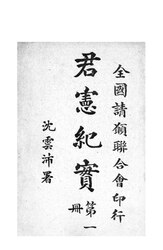 全國請願聯合會印行
君憲紀實第一冊
沈雲沛署